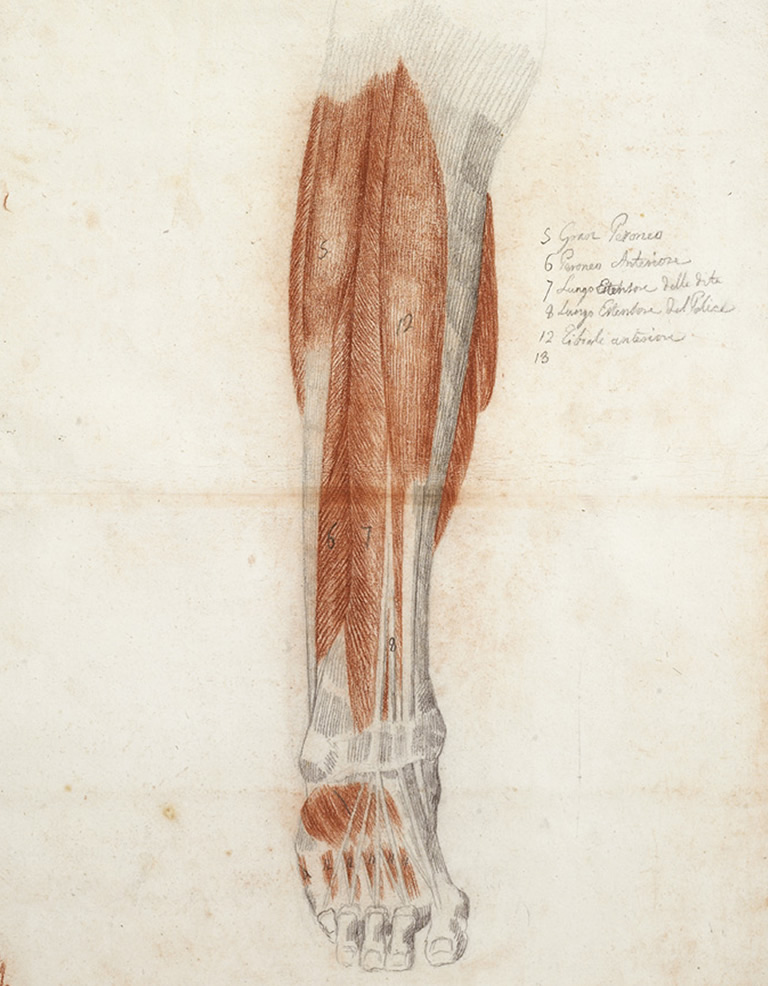 5 Gran Peroneo
6 Peroneo Anteriore
7 Lungo Estensore delle dita
8 Lungo Estensore del Police
12 Tibiale anteriore
13
5
12
6 7
8